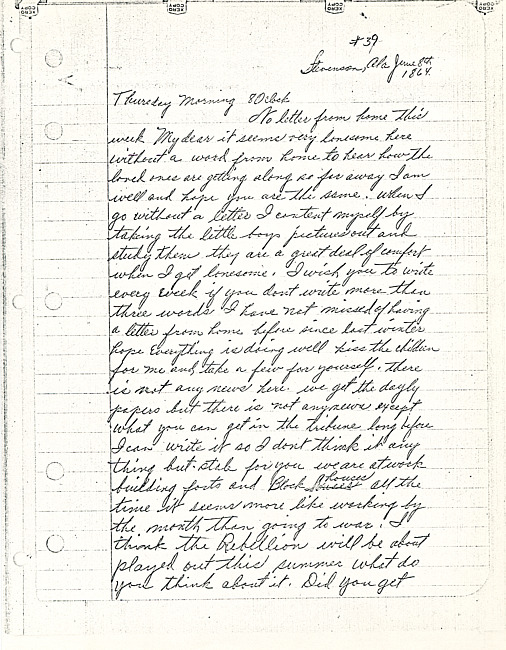 #39
Stevenson, Ala June 8th
1864.
Thursday Morning 8 Oclock
No letter from home this
week My dear it seems very lonesome here
without a word from home to hear how the
loved ones are getting along so far away I am
well and hope you are the same. When I
go without a letter I content myself by
taking the little boys pictures out and
study them they are a great deal of comfort
when I get lonesome. I wish you to write
every week if you dont write more than
three words I have not missed of having
a letter from home before since last winter
hope Everything is doing well kiss the children
for me and take a few for yourself. there
is not any news here. we get the dayly
papers but there is not any news except
what you can get in the tribune long before
I can write it so I dont think it any
thing but stale for you we are at work
building forts and Block Houses all the
time it seems more like working by
the month than going to war. I
think the Rebellion will be about
played out this summer what do
you think about it. Did you get